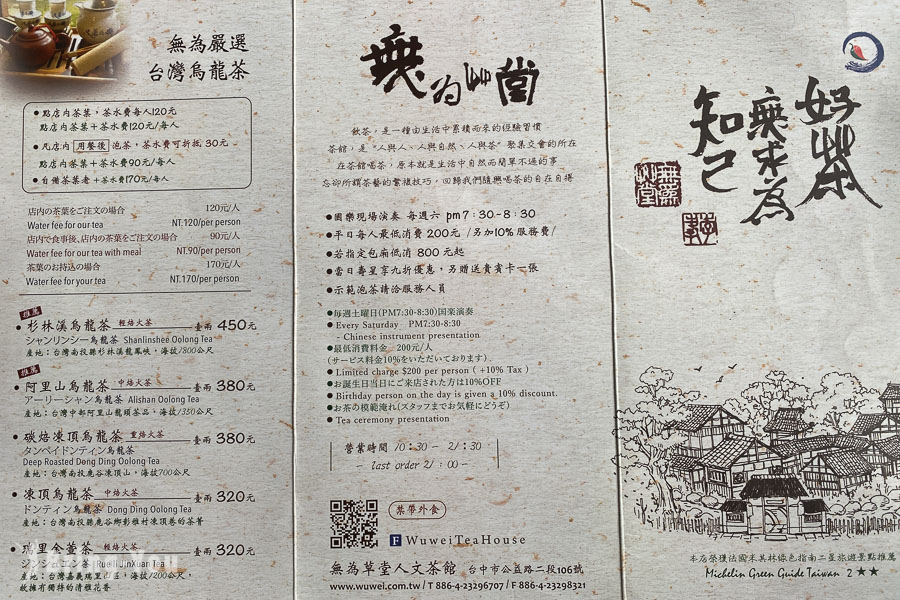 無為嚴選
台灣烏龍茶
●點店內茶葉，茶水費每人120元
點店內茶葉＋茶水費120元/每人
●凡店內 用餐後 泡茶，茶水費可折抵 30元
點店內茶葉＋茶水費90元/每人
●自備茶葉者＋茶水費170元/每人
店内の茶葉をご注文の場合 120元/人
Water fee for our tea NT.120/per person
店内で食事後、店内の茶葉をご注文の場合 90元/人
Water fee for our tea with meal NT.90/per person
茶葉のお持込の場合 170元/人
Water fee for your tea NT.170/per person
推薦
●杉林溪烏龍茶 輕焙火茶 臺兩 450元
シャンリンシー烏龍茶 Shanlinshee Oolong Tea
產地：台灣南投縣杉林溪龍鳳峽，海拔1800公尺
推薦
●阿里山烏龍茶 中焙火茶 臺兩 380元
アーリーシャン烏龍茶 Alishan Oolong Tea
產地：台灣中部阿里山龍頭茶品，海拔1350公尺
●碳焙凍頂烏龍茶 重焙火茶 臺兩 380元
タンペイドンティン烏龍茶
Deep Roasted Dong Ding Oolong Tea
產地：台灣南投鹿谷凍頂山，海拔700公尺
●凍頂烏龍茶 中焙火茶 臺兩 320元
ドンティン烏龍茶 Dong Ding Oolong Tea
產地：台灣南投縣鹿谷鄉彰雅村凍頂巷的茶菁
●瑞里金萱茶 輕焙火茶 臺兩 320元
Rueili JinXuan Tea
產地：台灣嘉義瑞里山區，海拔1200公尺，
故擁有獨特的清雅花香
無為草堂
飲茶，是一種由生活中累積而來的經驗習慣
茶館，是"人與人、人與自然、人與茶"聚集交會的所在
在茶館喝茶，原本就是生活中自然而簡單不過的事
忘卻所謂茶藝的繁複技巧，回歸我們隨興喝茶的自在自得
●國樂現場演奏 每週六 pm7：30-8：30
●平日每人最低消費 200元 /另加10%服務費/
●若指定包廂低消 800 元起
●當日壽星享九折優惠，另贈送貴賓卡一張
●示範泡茶請洽服務人員
●毎週土曜日(PM7:30-8:30)国楽演奏
●Every Saturday PM7:30-8:30
- Chinese instrument presentation
●最低消費料金 200元/人
(サービス料金10%をいただいております).
●Limited charge $200 per person ( +10% Tax )
●お誕生日当日にご来店された方は10%OFF
●Birthday person on the day is given a 10% discount.
●お茶の模範淹れ(スタッフまでお気軽にどうぞ)
●Tea ceremony presentation
營業時間 10：30 - 21：30
- last order 21：00 -
禁帶外食
WuweiTeaHouse
無為草堂人文茶館 台中市公益路二段106號
www.wuwei.com.tw/ T 886-4-23296707/ F 886-4-23298321
好茶
無求為
知己
無為草堂
本店榮獲法國米其林綠色指南二星旅遊景點推薦
Michelin Green Guide Taiwan 2★★